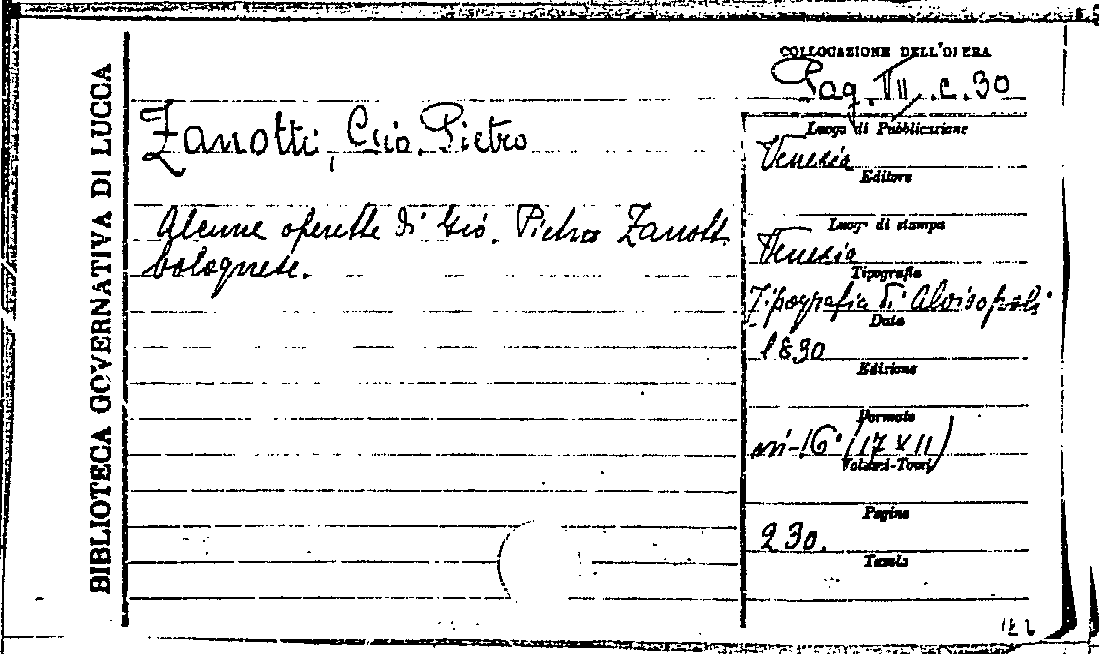 BIBLIOTECA GOVERNATIVA DI LUCCA
COLLOCAZIONE DELL'OPERA
Pag. VII. c. 30
Zanotti, Gio. Pietro
Alcune operette di Gio. Pietro Zanotti
bolognese.
Luogo di Pubblicazione
Venezia
Editore
Luogo di stampa
Venezia
Tipografia
Tipografia di Alvisopoli
Data
1830
Edizione
Formato
in-16° (17 x 11)
Volumi-Tomi
Pagine
230.
Tavole